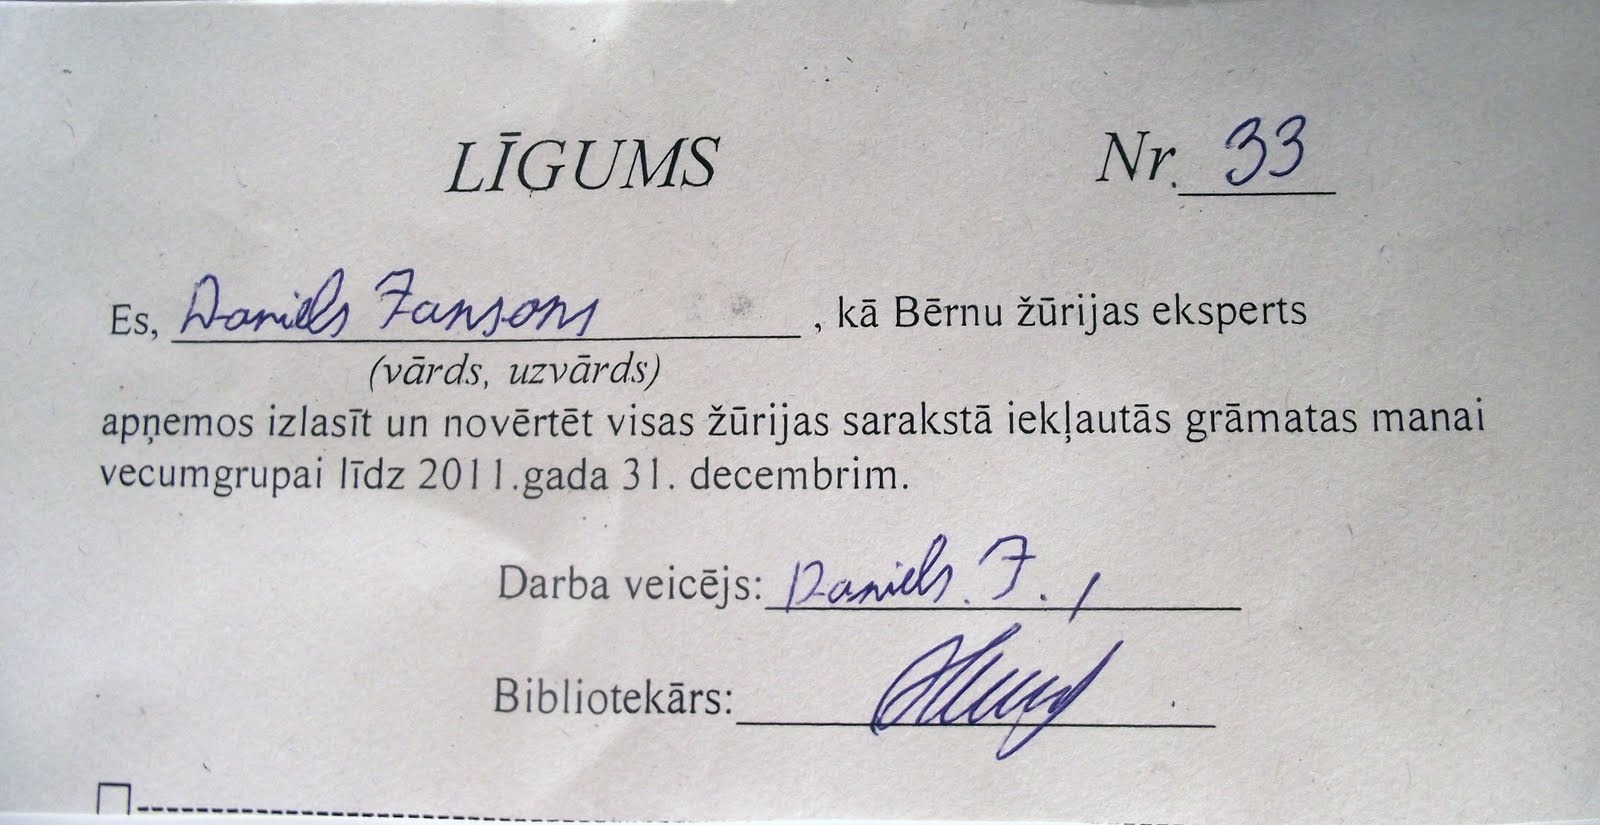 LĪGUMS Nr. 33
Es, Daniels Jansons, kā Bērnu žūrijas eksperts
(vārds, uzvārds)
apņemos izlasīt un novērtēt visas žūrijas sarakstā iekļautās grāmatas manai
vecumgrupai līdz 2011.gada 31. decembrim.
Darba veicējs: Daniels. J.
Bibliotekārs: